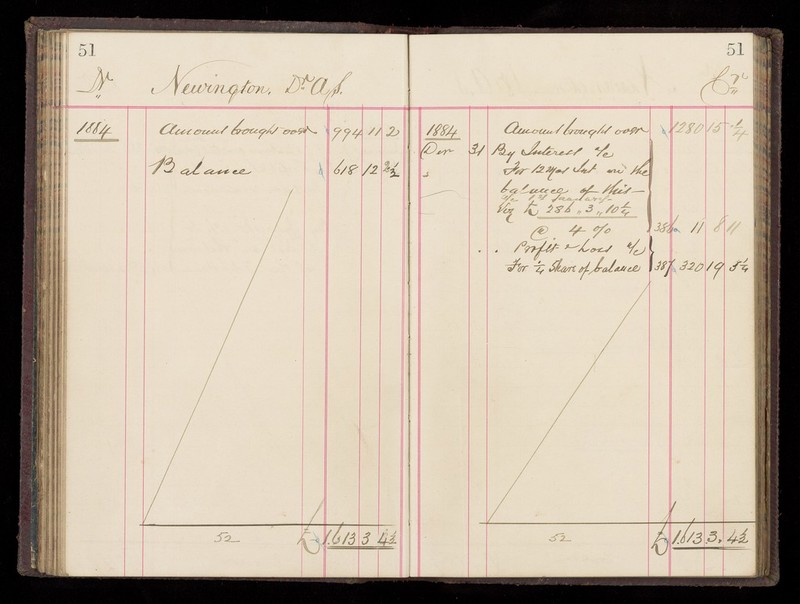 51
Dr
Newington. Dr A/S.
1884
Amount brought over 994 11 2
Balance 618 12 2½
52
£ 1613 3 4½
51
Cr
1884
Amount brought over 1280 15 ¼
Dec 31 By Interest a/c
For 12 Mos Int on the
balance of this
a/c 1st January
Viz £ 286 " 3 " 10¼
@ 4 % 386 11 8 11
Profit & Loss a/c
For ¼ Share of balance 387 320 19 5¼
52
£ 1613 3 4½